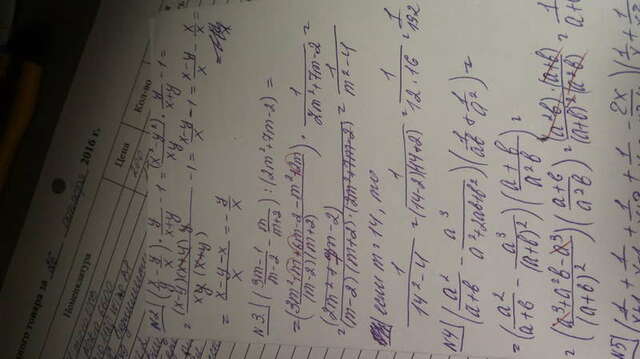 нного товара за 25 октября 2016 г.
Номенклатура
Цена
Кол-во
N2 (x/y - y/x) · y/(x+y) - 1 = (x²-y²)/xy · y/(x+y) - 1 =
= (x-y)(x+y) y / xy (x+y) - 1 = (x-y)/x - 1 = (x-y)/x - x/x =
= (x-y-x)/x = -y/x
N3. ((3m-1)/(m-2) - m/(m+2)) : (2m²+7m-2) =
= (3m²-m+6m-2-m²+2m)/((m-2)(m+2)) · 1/(2m²+7m-2) =
= (2m²+7m-2)/((m-2)(m+2)·(2m²+7m-2)) = 1/(m²-4)
если m=14, то
1/(14²-4) = 1/((14-2)(14+2)) = 1/(12·16) = 1/192
N4 (a²/(a+b) - a³/(a²+2ab+b²)) (1/ab + 1/a²) =
= (a²/(a+b) - a³/(a+b)²) ((a+b)/a²b) =
= ((a³+a²b-a³)/(a+b)²) ((a+b)/a²b) = (a²b)·(a+b)/((a+b)²(a²b)) = 1/a+b
N5